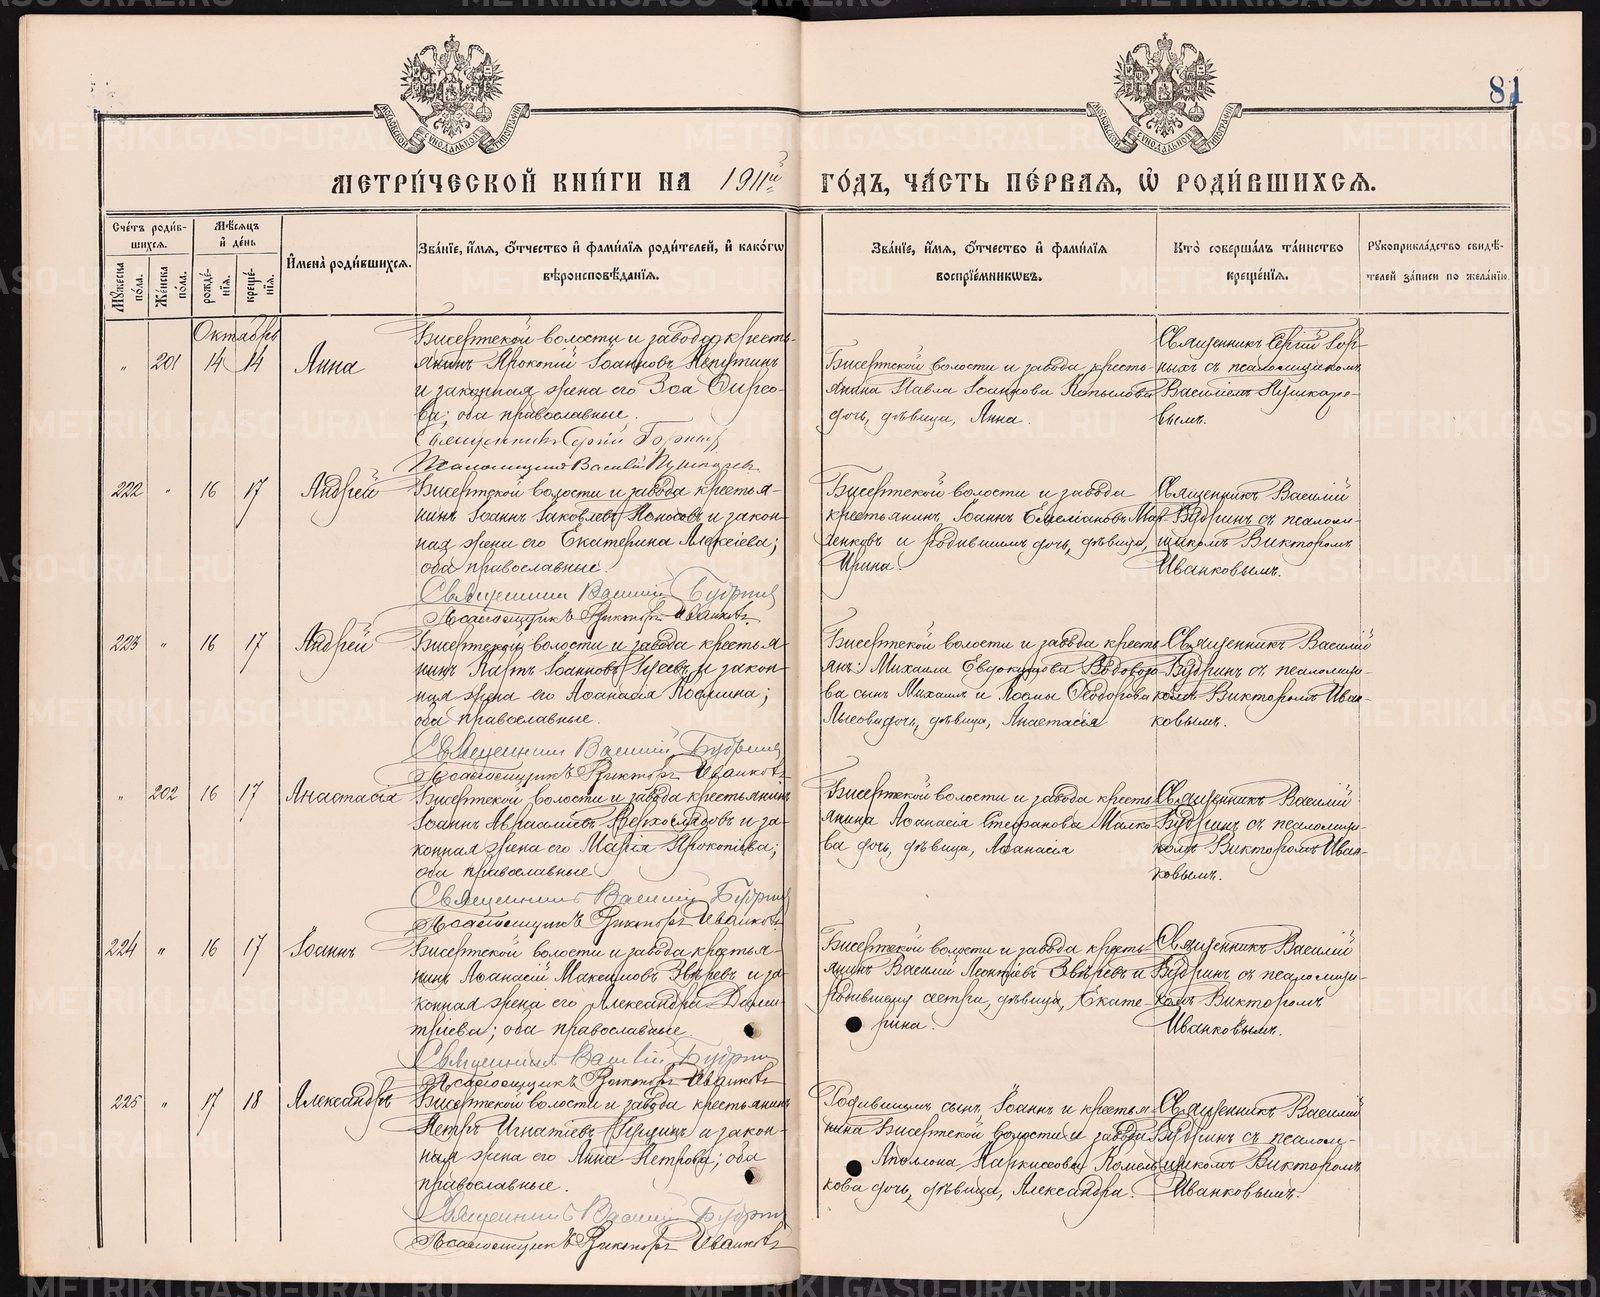 81
МЕТРИ́ЧЕСКОЙ КНИ́ГИ НА 1911й ГО́ДЪ, ЧА́СТЬ ПЕ́РВАЯ, Ѡ РОДИ́ВШИХСЯ.
Сче́тъ роди́в-
шихся.
Мꙋжеска по́ла.
Же́нска по́ла.
Мѣ́сяцъ
и де́нь
рожде́-
нїя.
креще́-
нїя.
И҆мена̀ роди́вшихся.
Зва́нїе, и҆́мя, ѻ҆́тчество и҆ фами́лїя роди́телей, и҆ како́гѡ
вѣроисповѣ́данїя.
Зва́нїе, и҆́мя, ѻ҆́тчество и҆ фами́лїя
воспрїе́мникѡвъ.
Кто̀ соверша́лъ та́инство
креще́нїя.
Рꙋкоприкла́дство свидѣ́-
телей за́писи по жела́нїю.
Октябрь
" 201 14 14 Анна
Бисертской волости и завода кресть-
янинъ Прокопій Іоанновъ
и законная жена его Зоа Фирсо-
ва; оба православные.
Священникъ Сергій Горныхъ
Псаломщикъ Василій Пушкаревъ
Бисертской волости и завода кресть-
янина Павла Іоаннова Копылова
дочь, дѣвица, Анна.
Священникъ Сергій Гор-
ныхъ съ псаломщикомъ
Василіемъ Пушкаре-
вымъ.
222 " 16 17 Андрей
Бисертской волости и завода крестья-
нинъ Іоаннъ Іаковлевъ и закон-
ная жена его Екатерина Алексіева;
оба православные.
Священникъ Василій Будринъ
Псаломщикъ Викторъ Иванковъ
Бисертской волости и завода
крестьянинъ Іоаннъ Емеліановъ
и родившимъ дочь, дѣвица,
Ирина.
Священникъ Василій
Будринъ съ псалом-
щикомъ Викторомъ
Иванковымъ.
223 " 16 17 Андрей
Бисертской волости и завода крестья-
нинъ Іоанновъ и закон-
ная жена его Аѳанасія Космина;
оба православные.
Священникъ Василій Будринъ
Псаломщикъ Викторъ Иванковъ
Бисертской волости и завода кресть-
янъ: Михаила Евдокимова
ва сынъ Михаилъ и Космы Ѳеодорова
Лысова дочь, дѣвица, Анастасія
Священникъ Василій
Будринъ съ псаломщи-
комъ Викторомъ Иван-
ковымъ.
" 202 16 17 Анастасія
Бисертской волости и завода крестьянинъ
Іоаннъ Авраамовъ Верхоглядовъ и за-
конная жена его Марія Прокопіева;
оба православные
Священникъ Василій Будринъ
Псаломщикъ Викторъ Иванковъ
Бисертской волости и завода кресть-
янина Аѳанасія Стефанова Малко-
ва дочь, дѣвица, Аѳанасія
Священникъ Василій
Будринъ съ псаломщи-
комъ Викторомъ Иван-
ковымъ.
224 " 16 17 Іоаннъ
Бисертской волости и завода крестья-
нинъ Аѳанасій Максимовъ Звѣревъ и за-
конная жена его Александра Дими-
тріева; оба православные.
Священникъ Василій Будринъ
Псаломщикъ Викторъ Иванковъ
Бисертской волости и завода кресть-
янинъ Василій Леонтіевъ Звѣревъ и
родившему сестра, дѣвица, Екате-
рина.
Священникъ Василій
Будринъ съ псаломщи-
комъ Викторомъ
Иванковымъ.
225 " 17 18 Александръ
Бисертской волости и завода крестьянинъ
Петръ Игнатіевъ и закон-
ная жена его Анна Петрова; оба
православные.
Священникъ Василій Будринъ
Псаломщикъ Викторъ Иванковъ
Родившимъ сынъ, Іоаннъ и крестья-
нина Бисертской волости и завода
Аполлона Наркисова Комель-
кова дочь, дѣвица, Александра.
Священникъ Василій
Будринъ съ псалом-
щикомъ Викторомъ
Иванковымъ.
METRIKI.GASO-URAL.RU